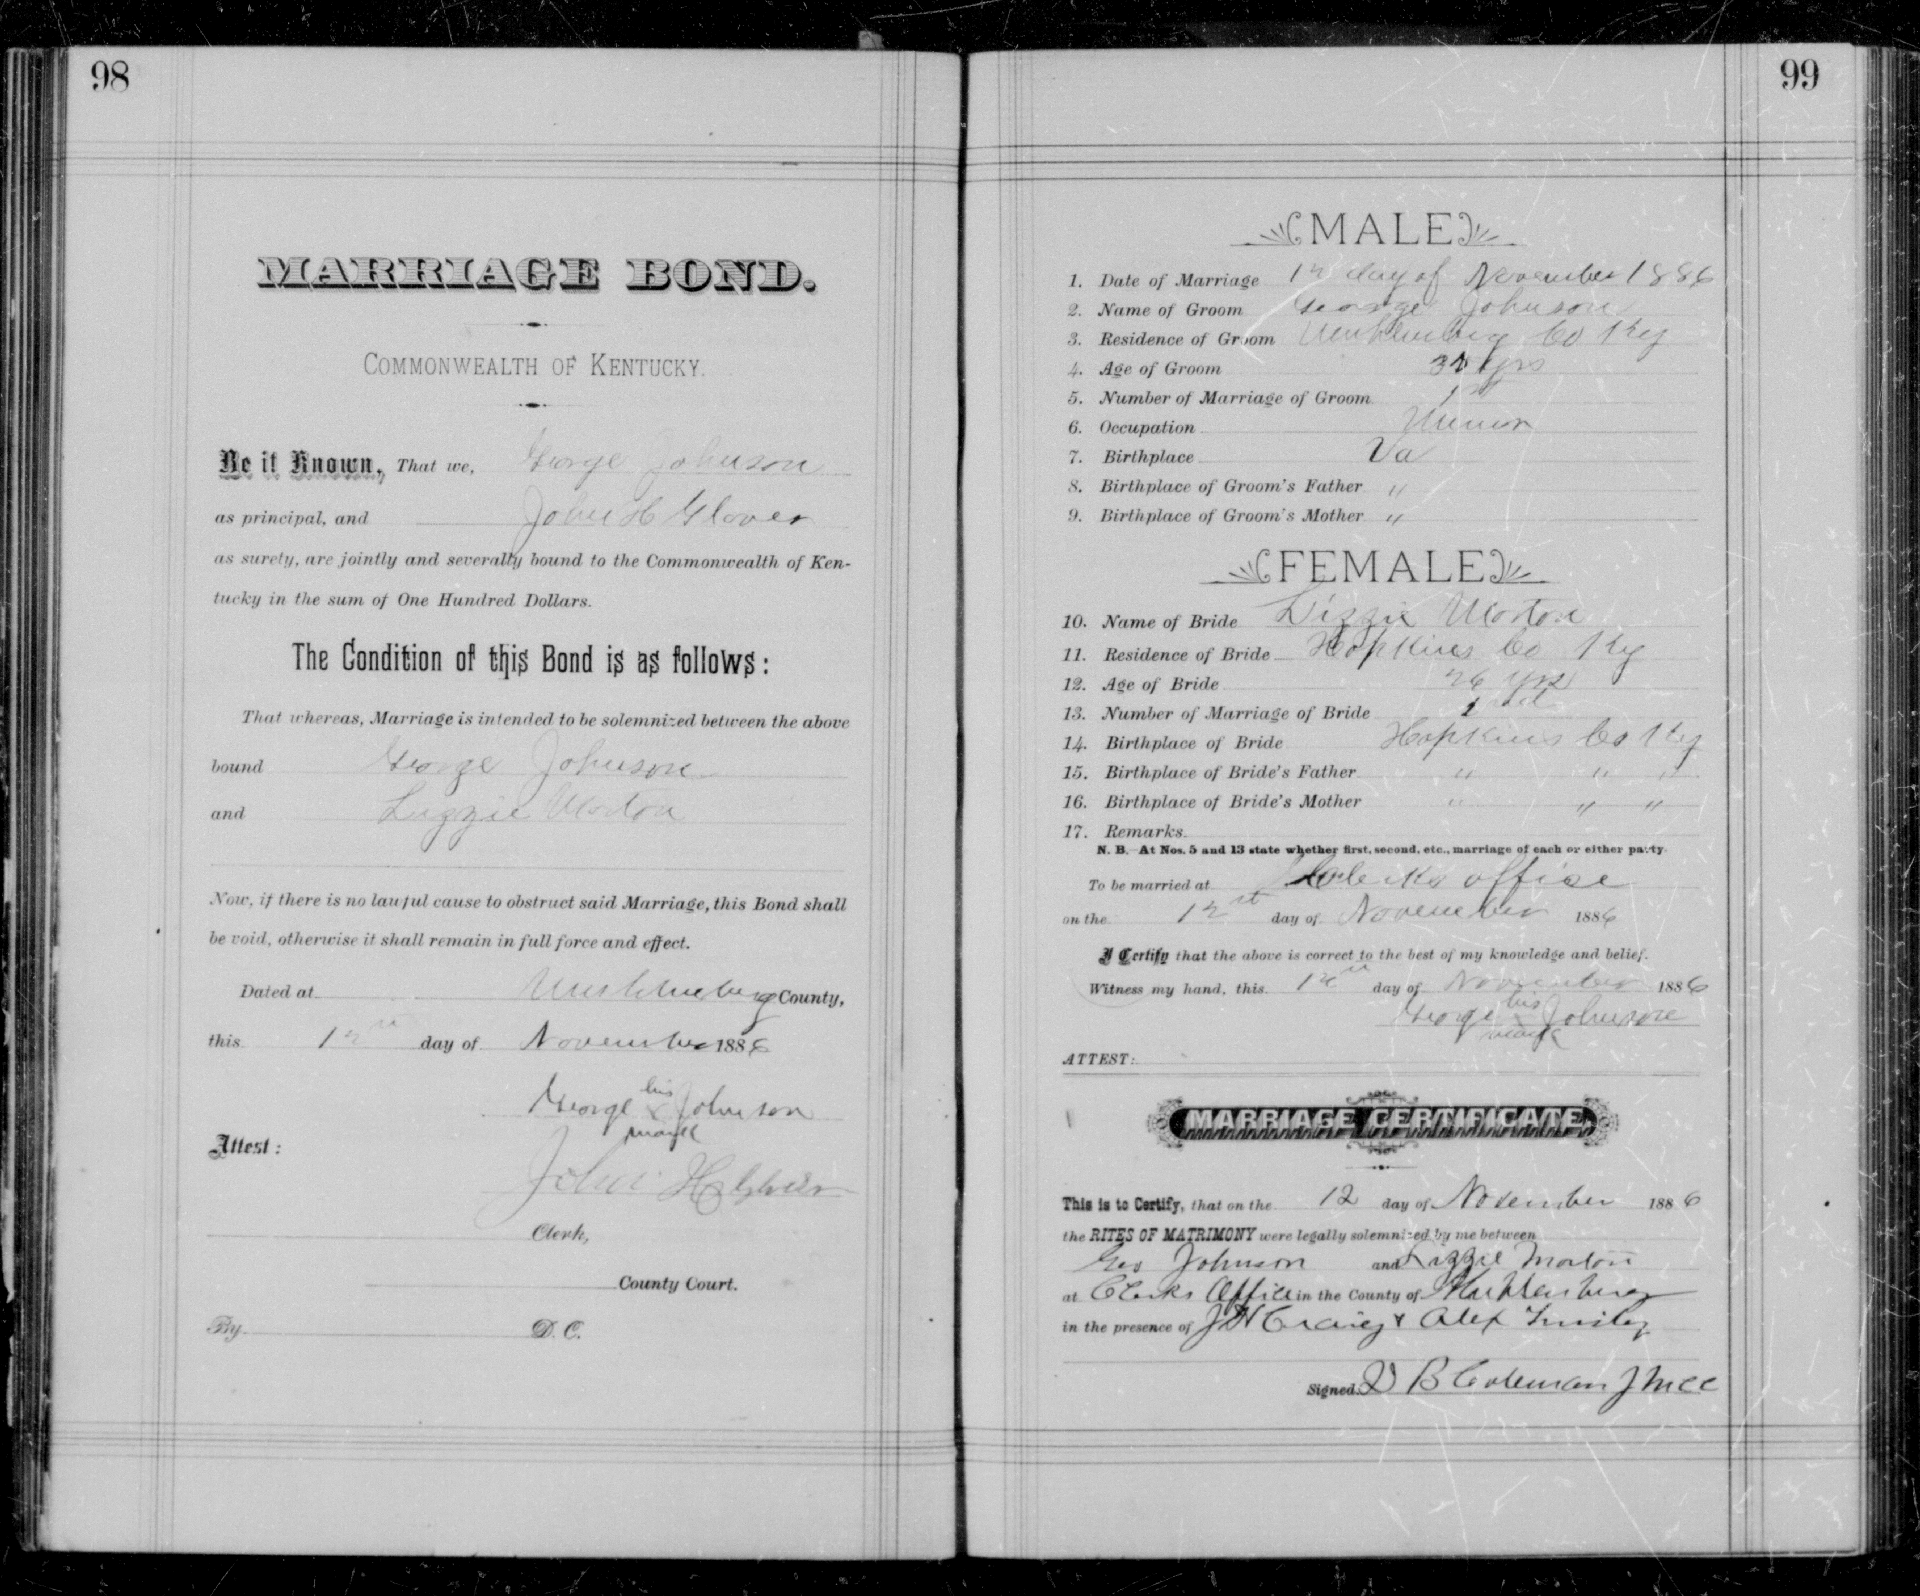 98
MARRIAGE BOND.
COMMONWEALTH OF KENTUCKY.
Be it Known, That we, George Johnson
as principal, and John H Glover
as surety, are jointly and severally bound to the Commonwealth of Ken-
tucky in the sum of One Hundred Dollars.
The Condition of this Bond is as follows:
That whereas, Marriage is intended to be solemnized between the above
bound George Johnson
and Lizzie Morton
Now, if there is no lawful cause to obstruct said Marriage, this Bond shall
be void, otherwise it shall remain in full force and effect.
Dated at Muhlenberg County,
this 12 day of November 1886
George his x Johnson
mark
Attest:
John H Glover
Clerk,
County Court.
By D. C.
99
MALE
1. Date of Marriage 12 day of November 1886
2. Name of Groom George Johnson
3. Residence of Groom Muhlenberg Co Ky
4. Age of Groom yrs
5. Number of Marriage of Groom 1st
6. Occupation
7. Birthplace Va
8. Birthplace of Groom's Father "
9. Birthplace of Groom's Mother "
FEMALE
10. Name of Bride Lizzie Morton
11. Residence of Bride Hopkins Co Ky
12. Age of Bride 26 yrs
13. Number of Marriage of Bride
14. Birthplace of Bride Hopkins Co Ky
15. Birthplace of Bride's Father " " "
16. Birthplace of Bride's Mother " " "
17. Remarks
N. B. At Nos. 5 and 13 state whether first, second, etc., marriage of each or either party
To be married at Clerks office
on the 12 day of November 1886
I Certify that the above is correct to the best of my knowledge and belief.
Witness my hand, this 12 day of November 1886
George his x Johnson
mark
ATTEST:
MARRIAGE CERTIFICATE
This is to Certify, that on the 12 day of November 1886
the RITES OF MATRIMONY were legally solemnized by me between
Geo Johnson and Lizzie Morton
at Clerks Office in the County of Muhlenberg
in the presence of J H Craig & Alex
Signed. B Coleman